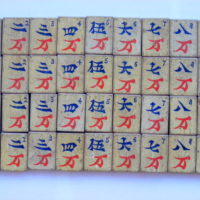 2 3 4 5 6 7 8
二 三 四 伍 六 七 八
万 万 万 万 万 万 万
2 3 4 5 6 7 8
二 三 四 伍 六 七 八
万 万 万 万 万 万 万
2 3 4 5 6 7 8
二 三 四 伍 六 七 八
万 万 万 万 万 万 万
2 3 4 5 6 7 8
二 三 四 伍 六 七 八
万 万 万 万 万 万 万